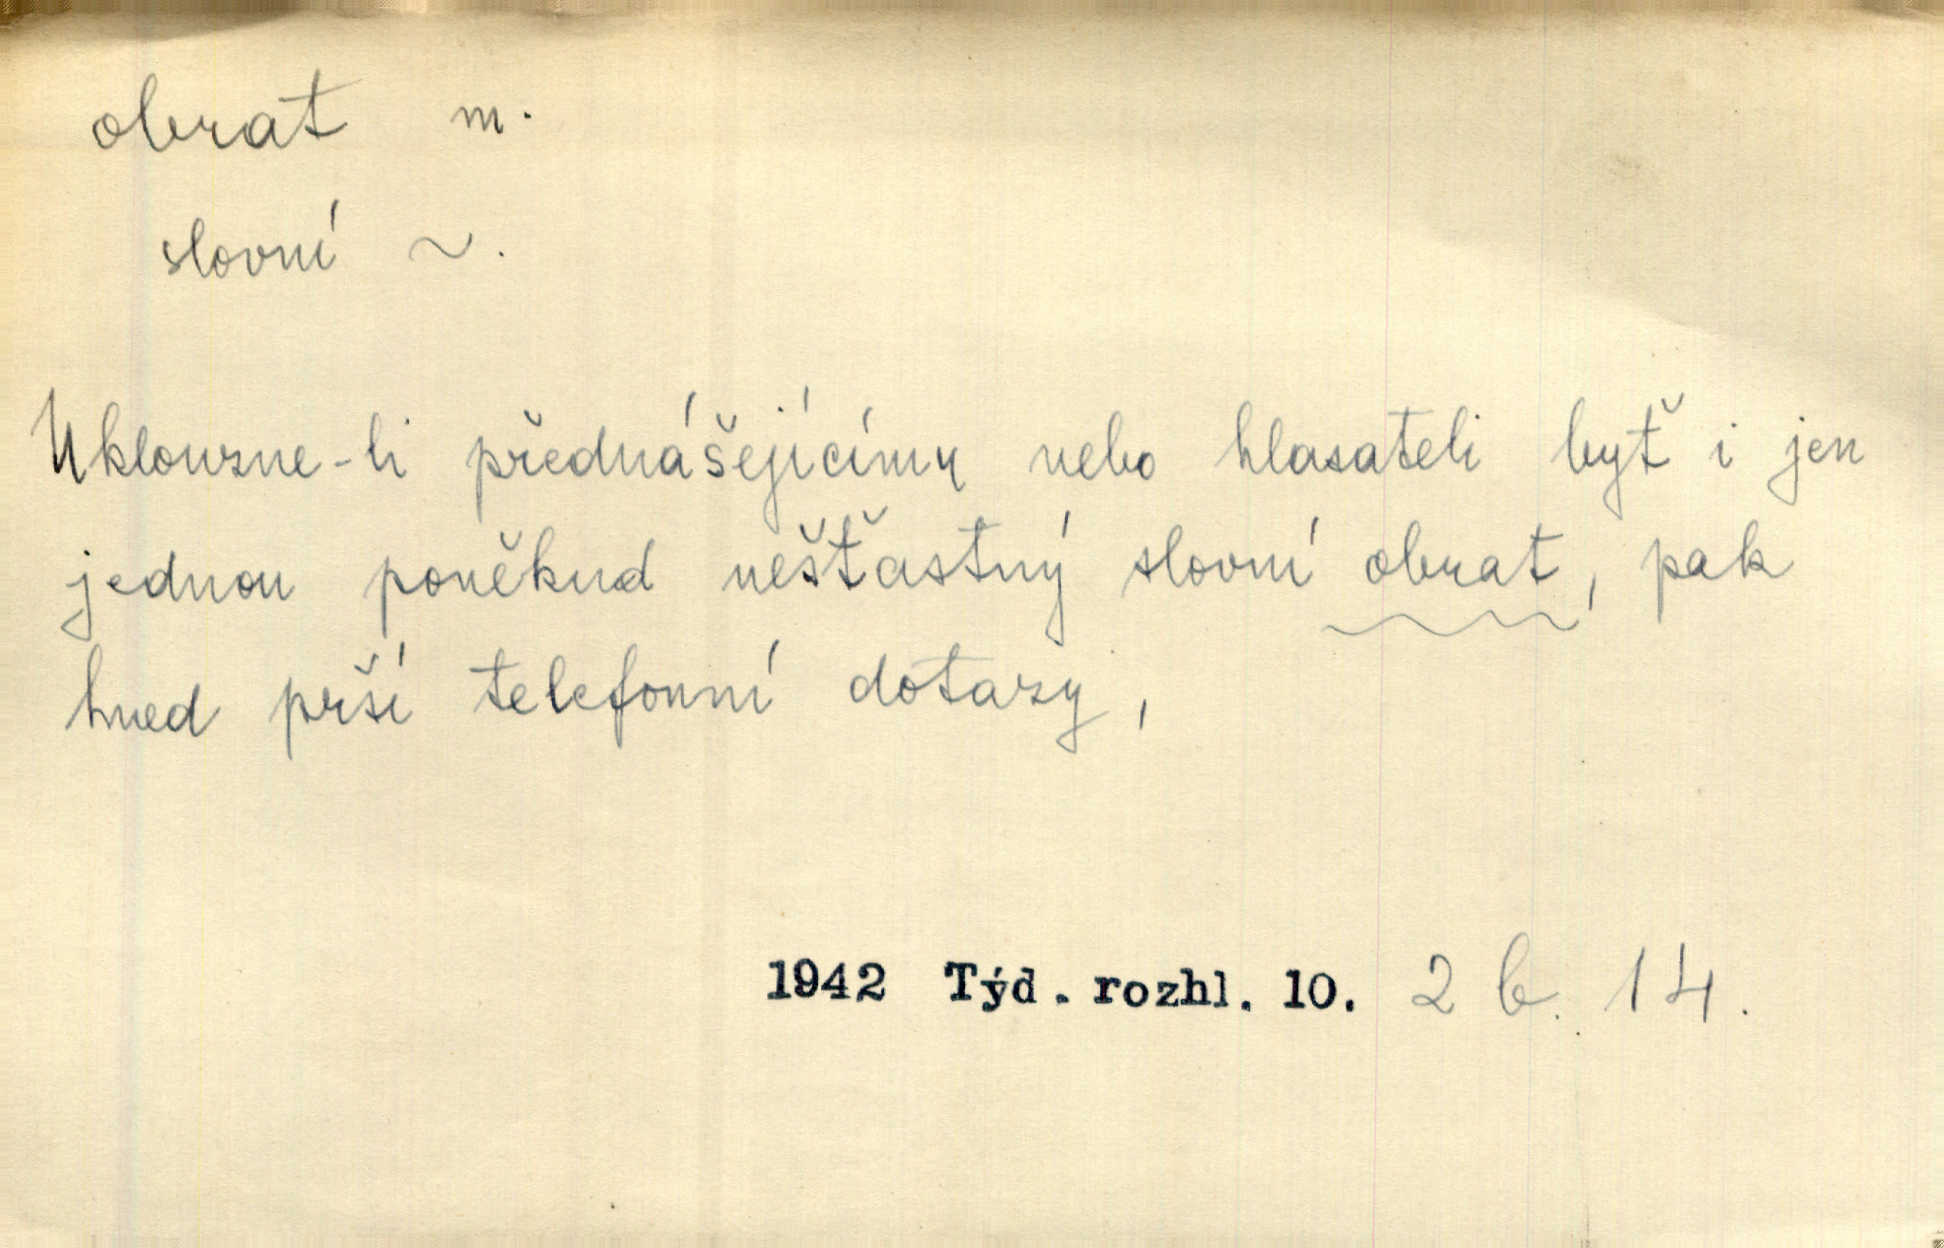 obrat m.
slovní ~.
Uklouzne-li přednášejícímu nebo hlasateli byť i jen
jednou poněkud nešťastný slovní obrat, pak
hned prší telefonní dotazy,
1942 Týd. rozhl. 10. 2 b. 14.